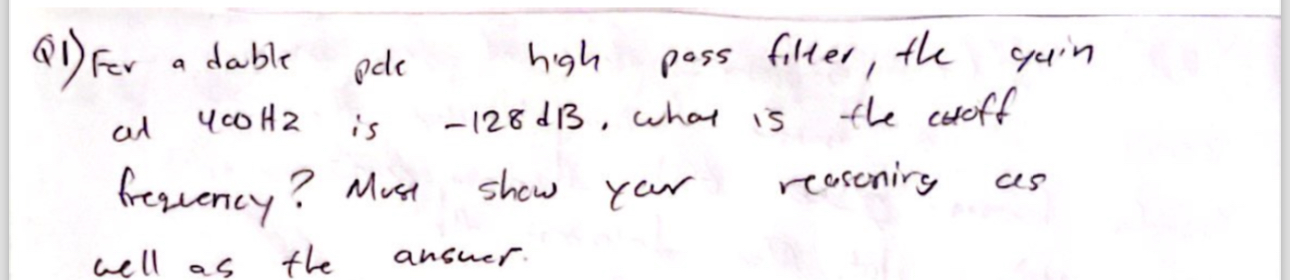 Q1) For a double pole high pass filter, the gain
at 400 Hz is -128 dB. what is the cutoff
frequency? Must show your reasoning as
well as the answer.